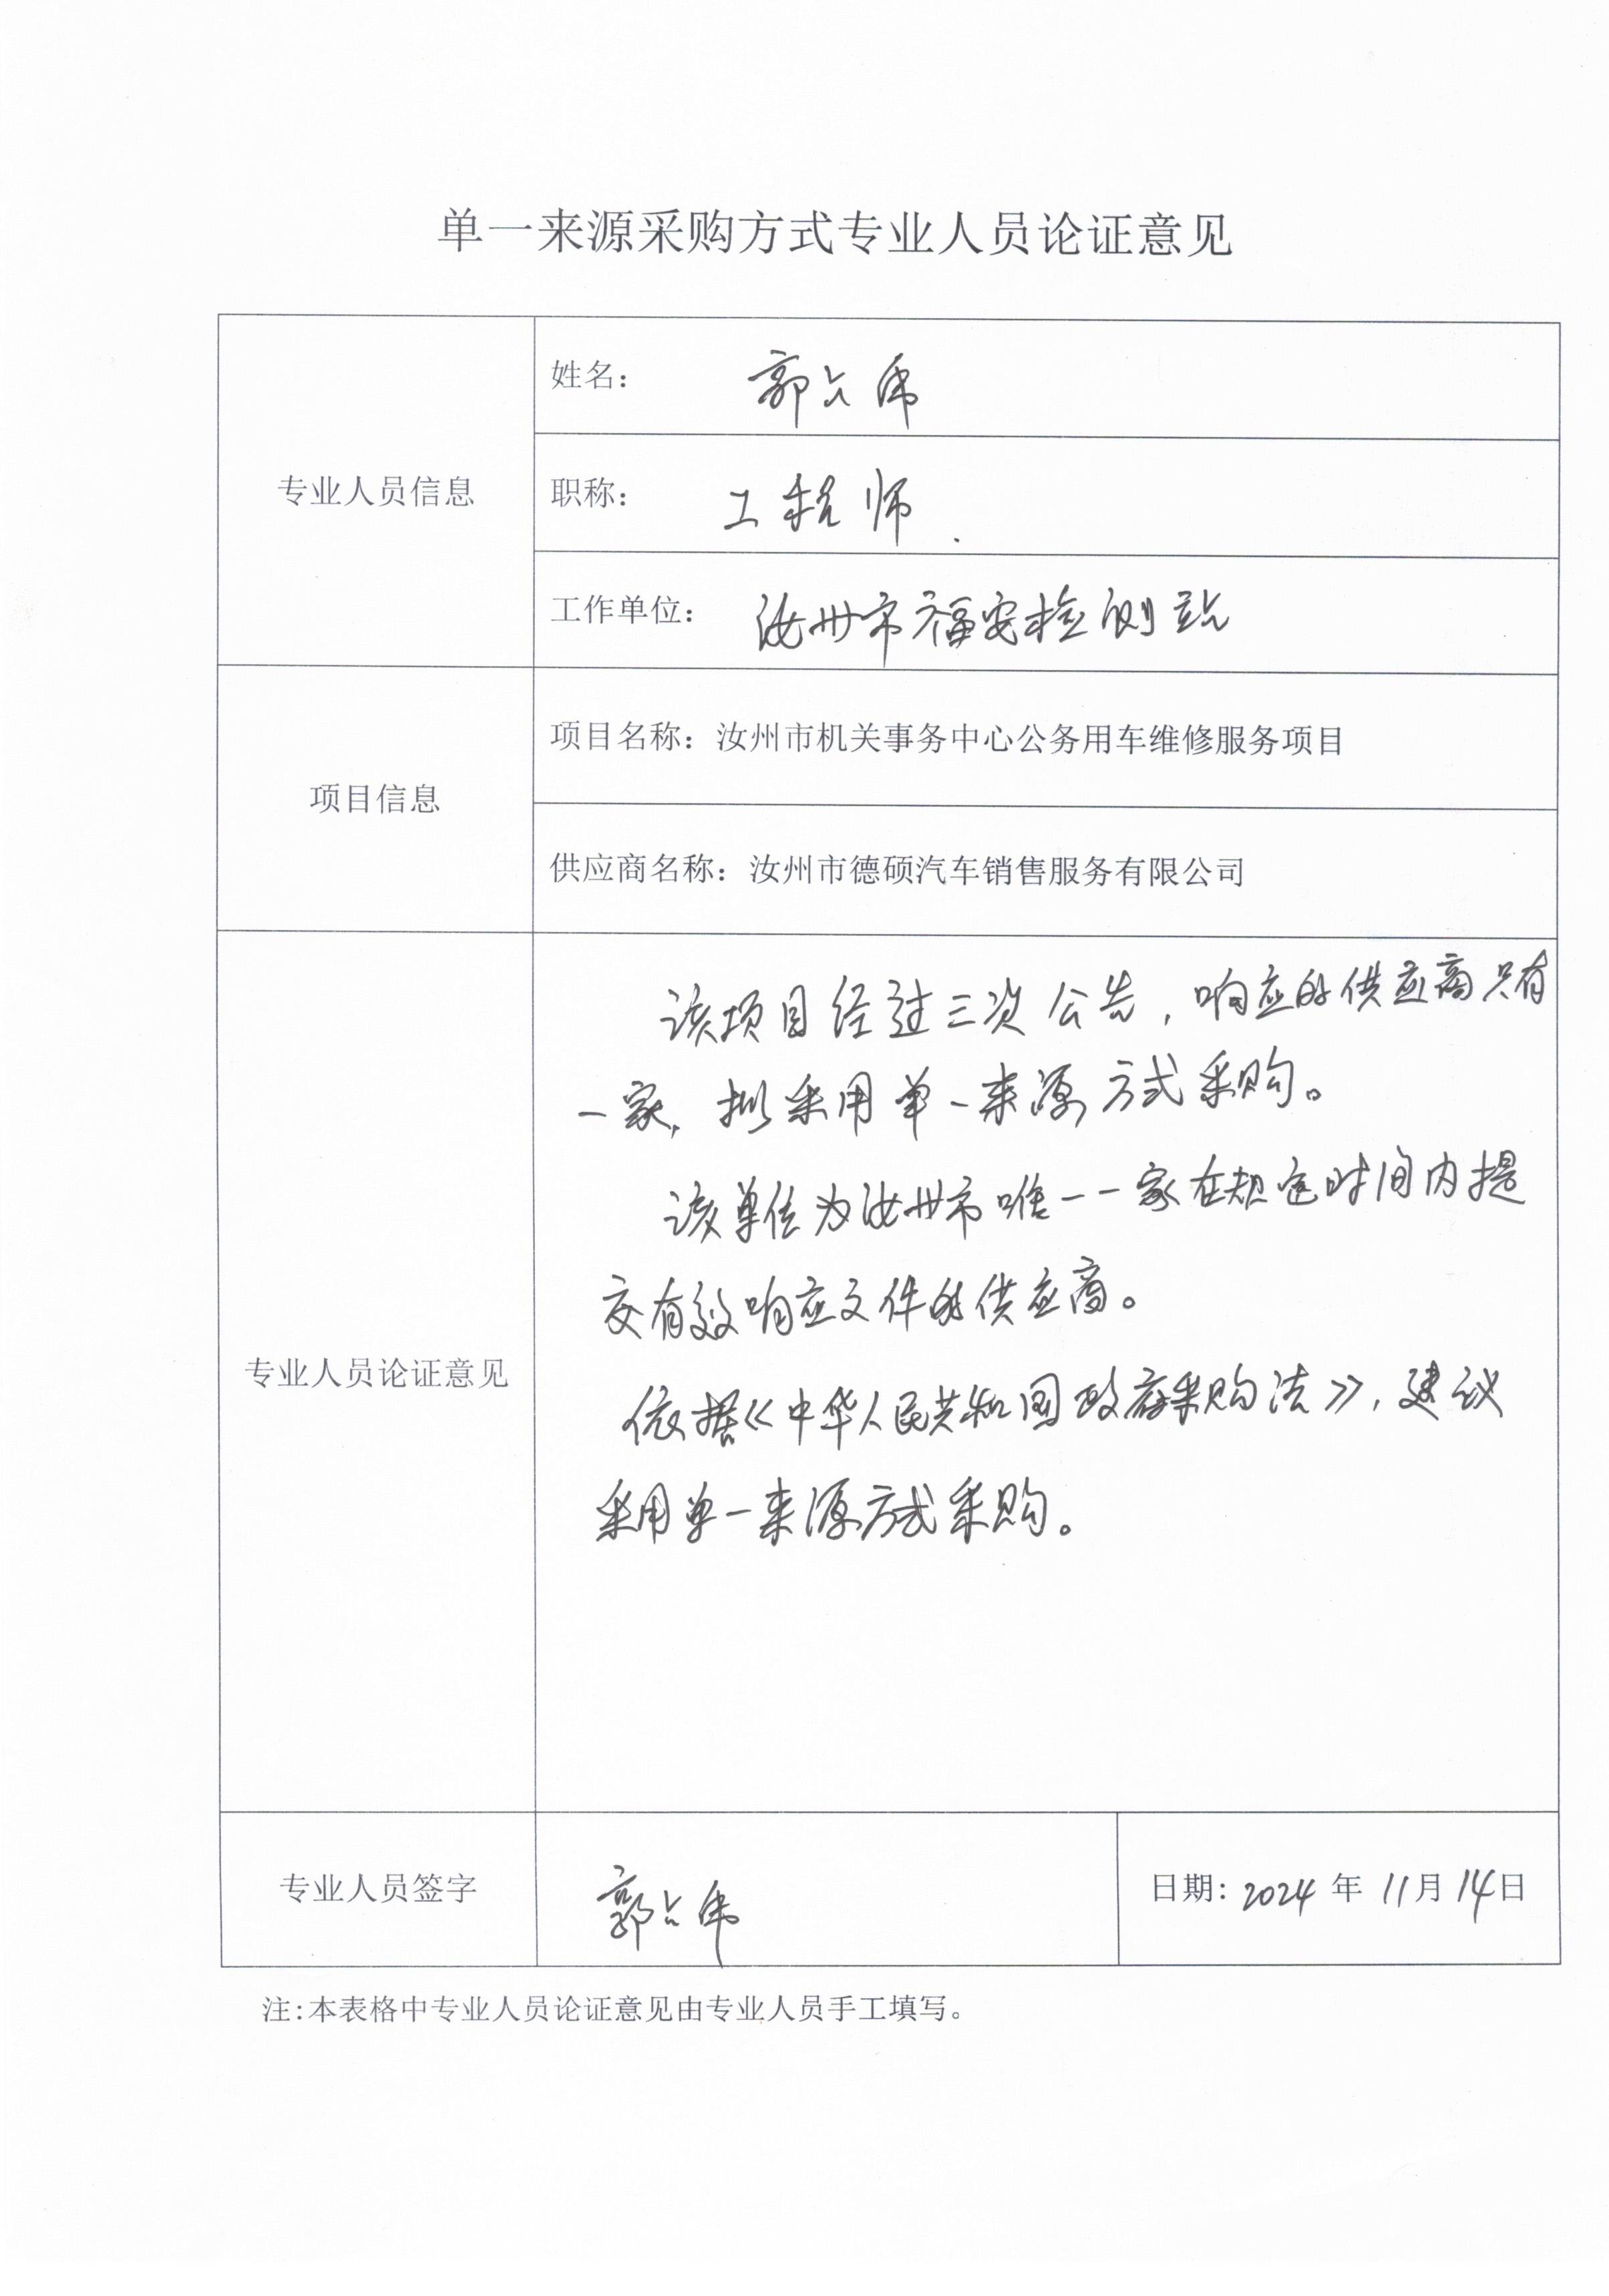 单一来源采购方式专业人员论证意见
专业人员信息
姓名： 郭 伟
职称： 工程师.
工作单位： 汝州市福安检测站
项目信息
项目名称：汝州市机关事务中心公务用车维修服务项目
供应商名称：汝州市德硕汽车销售服务有限公司
专业人员论证意见
该项目经过三次公告，响应的供应商只有
一家，拟采用单一来源方式采购。
该单位为汝州市唯一一家在规定时间内提
交有效响应文件的供应商。
依据《中华人民共和国政府采购法》，建议
采用单一来源方式采购。
专业人员签字
郭 伟
日期：2024年11月14日
注：本表格中专业人员论证意见由专业人员手工填写。